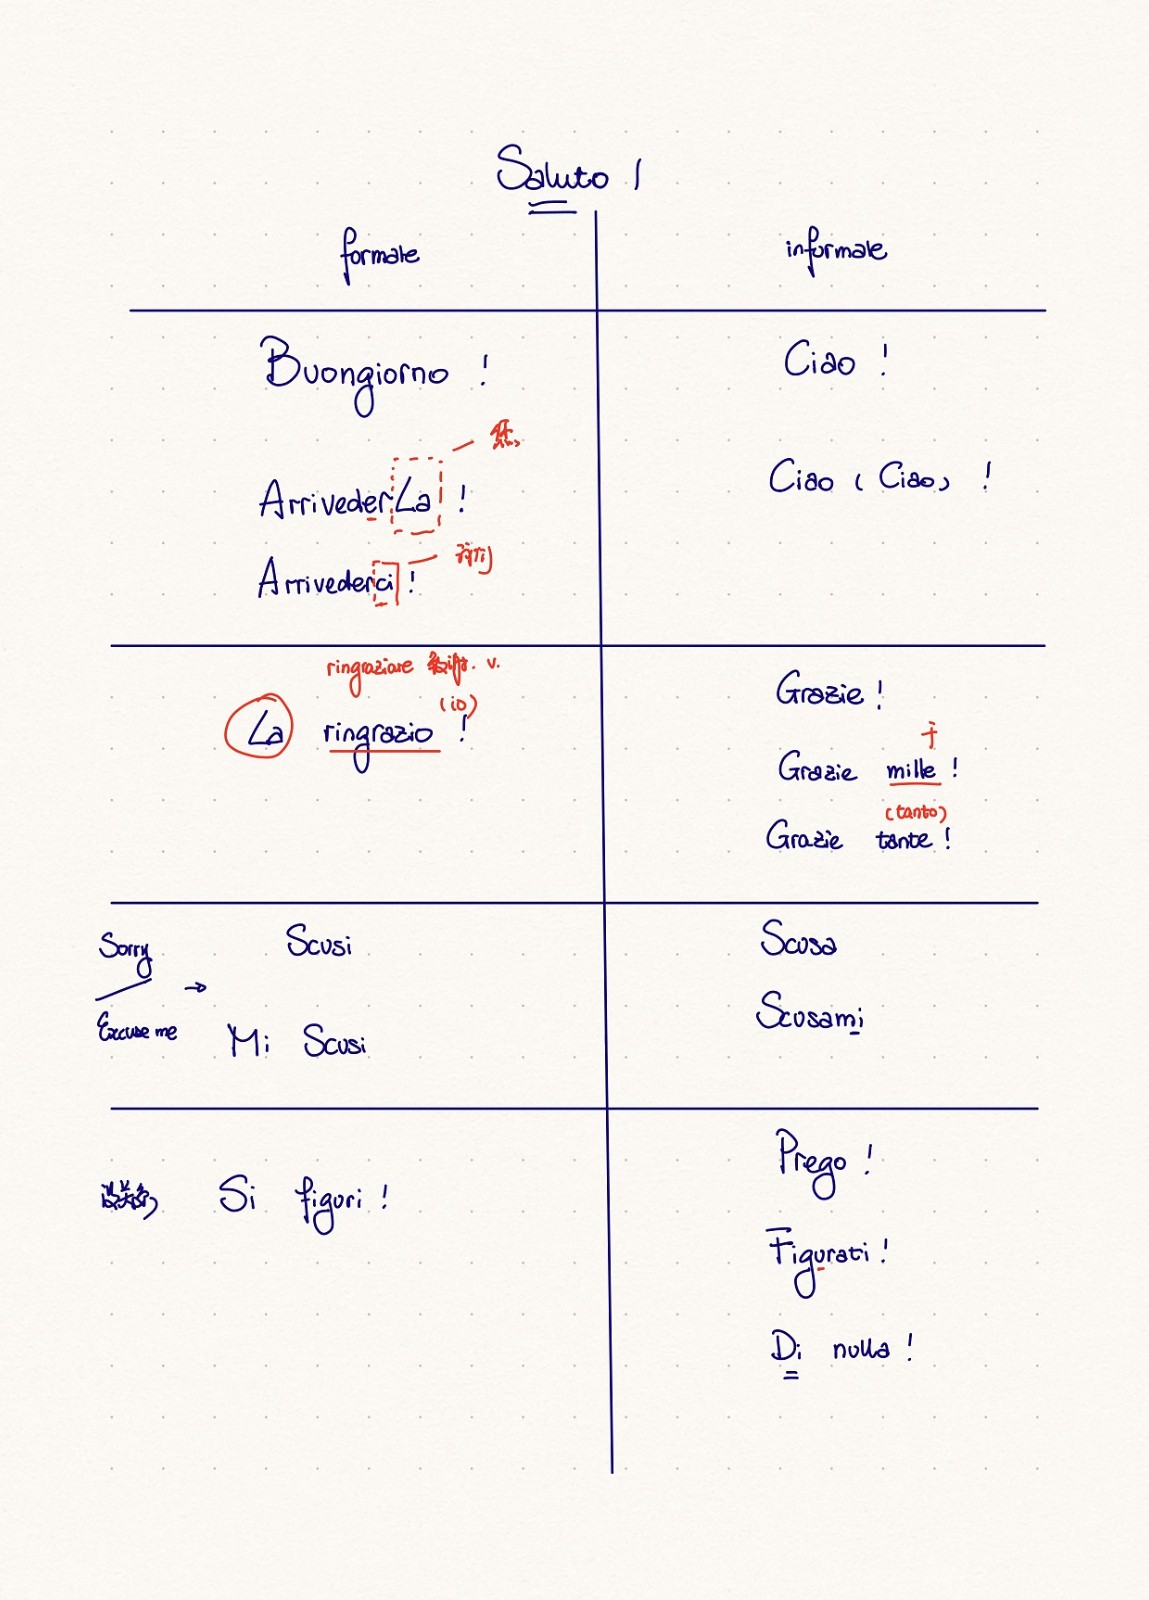 Saluto !
formale
informale
Buongiorno !
Ciao !
您
ArrivederLa !
Ciao ( Ciao) !
Arrivederci !
我们
ringraziare 感谢. v.
(io)
La ringrazio !
Grazie !
千
Grazie mille !
(tanto)
Grazie tante !
Sorry
Scusi
Scusa
→
Excuse me
Mi Scusi
Scusami
Prego !
没关系
Si figuri !
Figurati !
Di nulla !